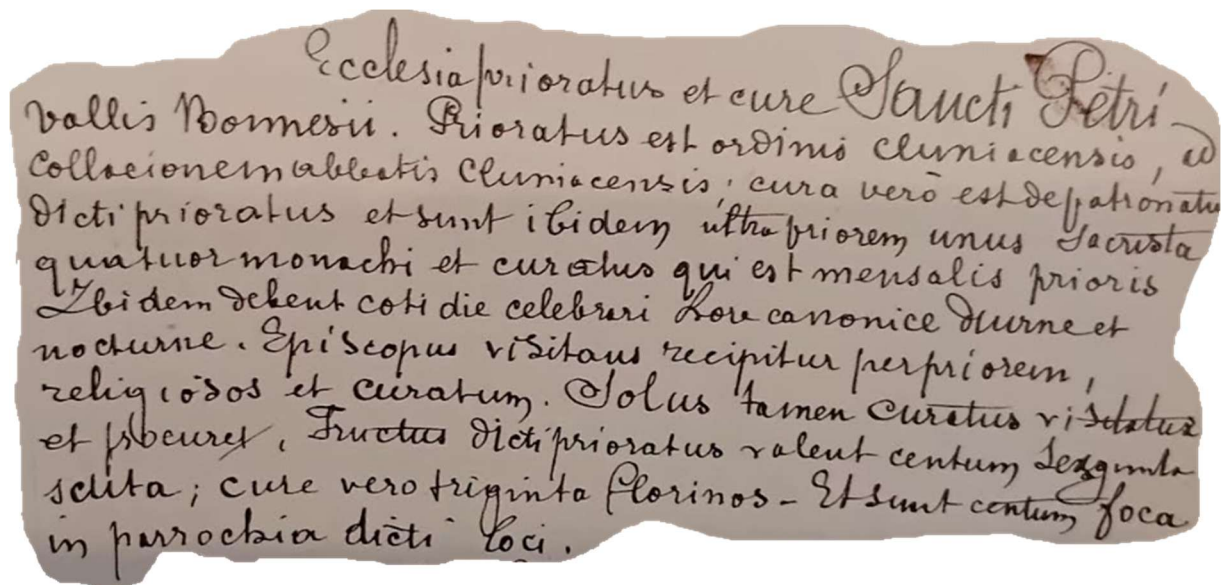 Ecclesia prioratus et cure Sancti Petri
vallis Bonnesii. Prioratus est ordinis cluniacensis, ad
collacionem abbatis cluniacensis; cura vero est de patronatu
dicti prioratus et sunt ibidem ultra priorem unus sacrista
quatuor monachi et curatus qui est mensalis prioris
Ibidem debent cotidie celebrari hore canonice diurne et
nocturne. Episcopus visitans recipitur per priorem,
religiosos et curatum. Solus tamen curatus visitatur
et procuret. Fructus dicti prioratus valent centum sexginta
scuta; cure vero triginta florinos - Et sunt centum foca
in parrochia dicti loci.